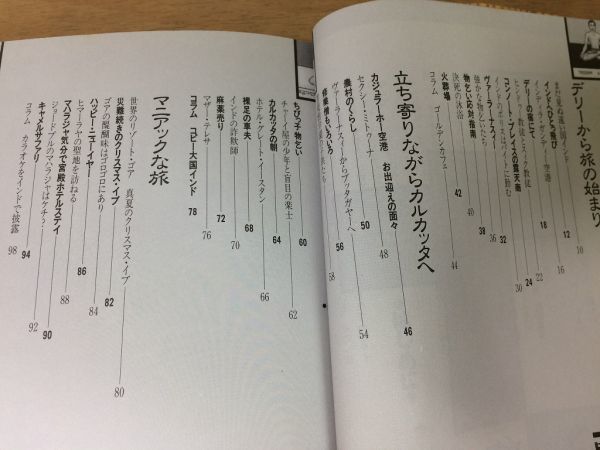 デリーから旅の始まり
まだ見ぬ遠い国インド 10
インドへひとっ飛び 12
インディラ・ガンディー空港 16
デリーの宿 18
22
コンノート・プレイスの露天商 24
30
ヴァーラーナスィー 32
36
物乞い応対指南 38
決死の沐浴 40
火葬場 42
コラム ゴールデンカフェ 44
立ち寄りながらカルカッタへ 46
カジュラーホー空港 お出迎えの面々
セクシー・ミトゥーナ 48
農村のくらし 50
ヴァーラーナスィーからブッダガヤーへ 54
修業僧もいろいろ 56
58
ちびっ子物乞い 60
チャーイ屋の少年と盲目の楽士 62
カルカッタの朝 64
ホテル・グレート・イースタン 66
裸足の車夫 68
インドの詐欺師 70
麻薬売り 72
マザー・テレサ 76
コラム コピー大国インド 78
マニアックな旅 80
世界のリゾート・ゴア 真夏のクリスマス・イブ
災難続きのクリスマス・イブ 82
ゴアの醍醐味はゴロゴロにあり 84
ハッピー・ニューイヤー 86
ヒマーラヤの聖地を訪ねる 88
マハラジャ気分で宮殿ホテルステイ 90
ジョードプルのマハラジャはケチ？ 92
キャメルサファリ 94
コラム カラオケをインドで披露 98